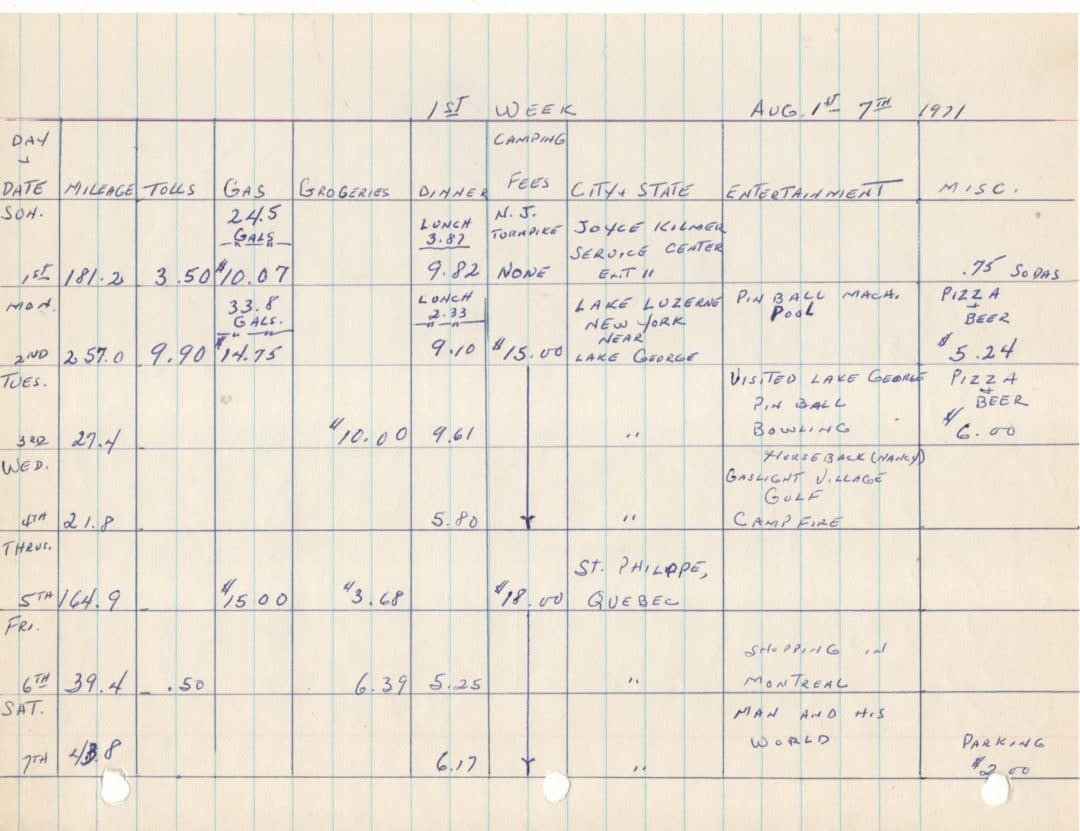 1ST WEEK AUG. 1ST 7TH 1971
DAY CAMPING
DATE MILEAGE TOLLS GAS GROGERIES DINNER FEES CITY + STATE ENTERTAINMENT MISC.
SUN. 24.5 GALS LUNCH 3.87 N.J. TURNPIKE JOYCE KILMER
SERVICE CENTER
1ST 181.2 3.50 $10.07 9.82 NONE EXIT 11 .75 SODAS
MON. 33.8 GALS. LUNCH 2.33 LAKE LUZERNE PIN BALL MACH. PIZZA
NEW YORK POOL + BEER
NEAR
2ND 257.0 9.90 $14.75 9.10 $15.00 LAKE GEORGE $5.24
TUES. VISITED LAKE GEORGE PIZZA
PIN BALL + BEER
3RD 27.4 – $10.00 9.61 " BOWLING $6.00
WED. HORSEBACK (NANCY)
GASLIGHT VILLAGE
GULF
4TH 21.8 – 5.80 " CAMPFIRE
THRUS. ST. PHILIPPE,
5TH 164.9 – $15.00 $3.68 $18.00 QUEBEC
FRI. SHOPPING IN
6TH 39.4 – .50 6.39 5.25 " MONTREAL
SAT. MAN AND HIS
WORLD PARKING
7TH 43.8 6.17 " $2.00